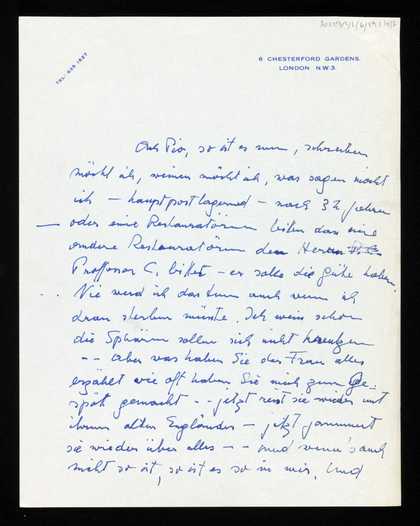 6 CHESTERFORD GARDENS.
LONDON N.W.3.
Och Pio, so ist es nun, schreiben
möcht ich, weinen möcht ich, was sagen möcht
ich – hauptpostlagernd – nach 32 Jahren
oder eine Restauratörin bitten das eine
andere Restauratörin den Herrn
Proffossor C. bittet – er solle die güte haben.
Nie werd ich das tun auch wenn ich
dran sterben müsste. Ich weis schon
die Sphären sollen sich nicht kreutzen
-- aber was haben Sie der Frau alles
erzählt wie oft haben Sie mich zum Ge-
spött gemacht -- jetzt reist sie wieder mit
ihrem alten Engländer – jetzt jammert
sie wieder über alles -- und wenn's auch
nicht so ist, so ist es so in mir. Und